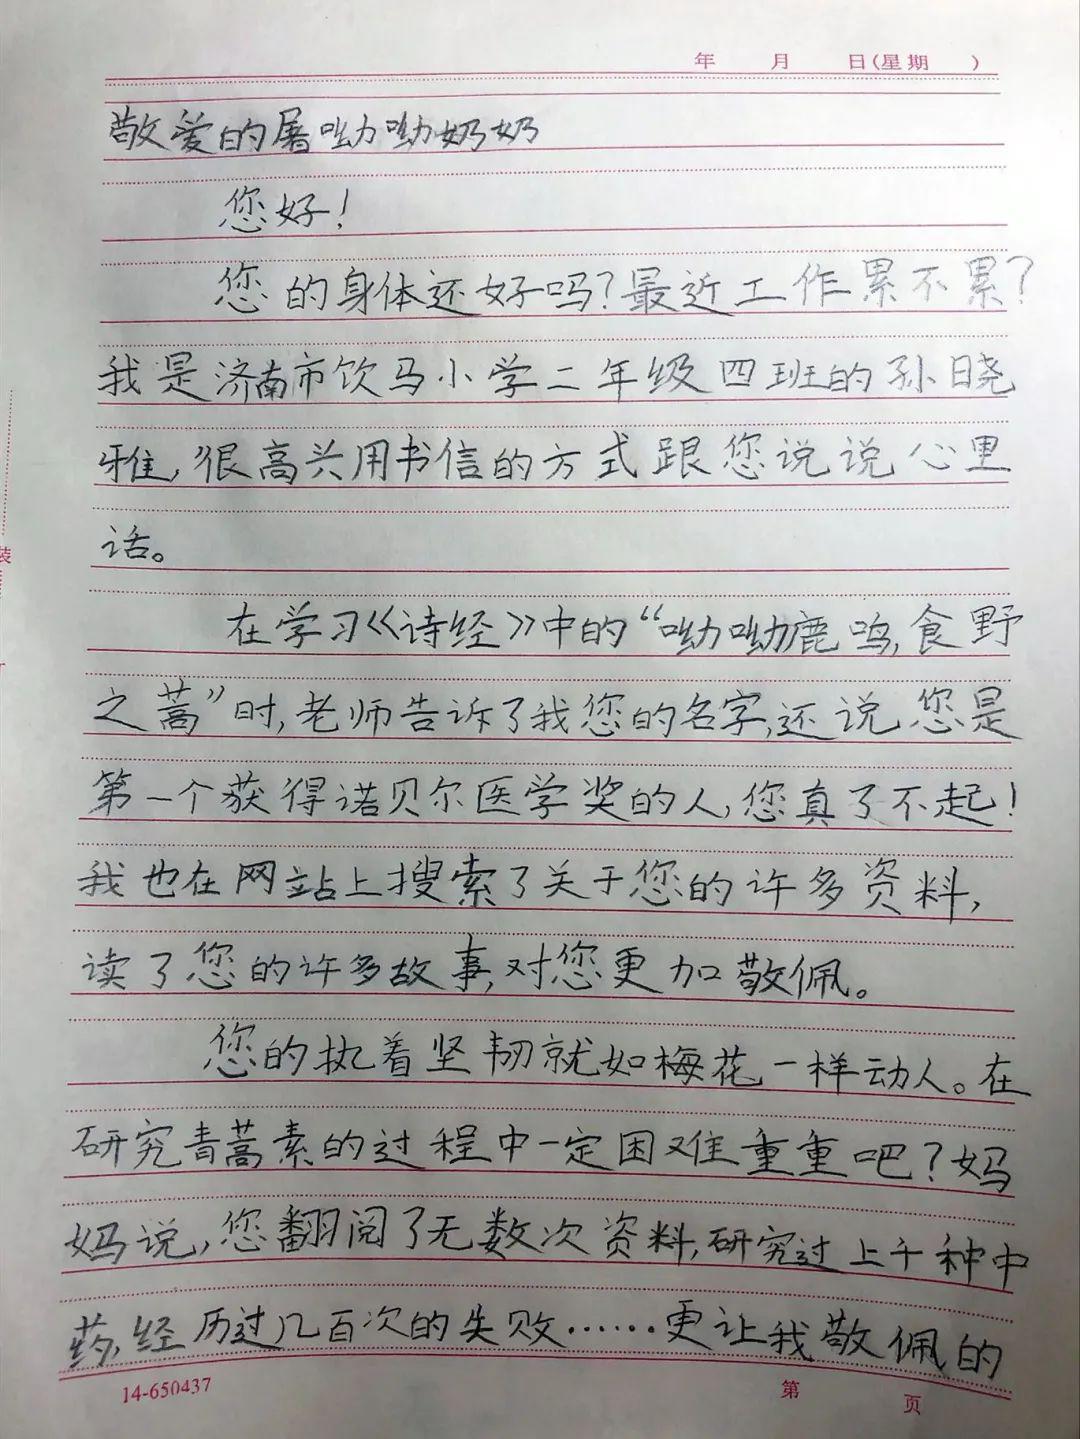 年 月 日(星期 )
敬爱的屠呦呦奶奶
您好!
您的身体还好吗?最近工作累不累?
我是济南市饮马小学二年级四班的孙晓
雅,很高兴用书信的方式跟您说说心里
话。
在学习《诗经》中的“呦呦鹿鸣,食野
之蒿”时,老师告诉了我您的名字,还说您是
第一个获得诺贝尔医学奖的人,您真了不起!
我也在网站上搜索了关于您的许多资料,
读了您的许多故事,对您更加敬佩。
您的执着坚韧就如梅花一样动人。在
研究青蒿素的过程中一定困难重重吧?妈
妈说,您翻阅了无数次资料,研究过上千种中
药,经历过几百次的失败……更让我敬佩的
14-650437 第 页
装